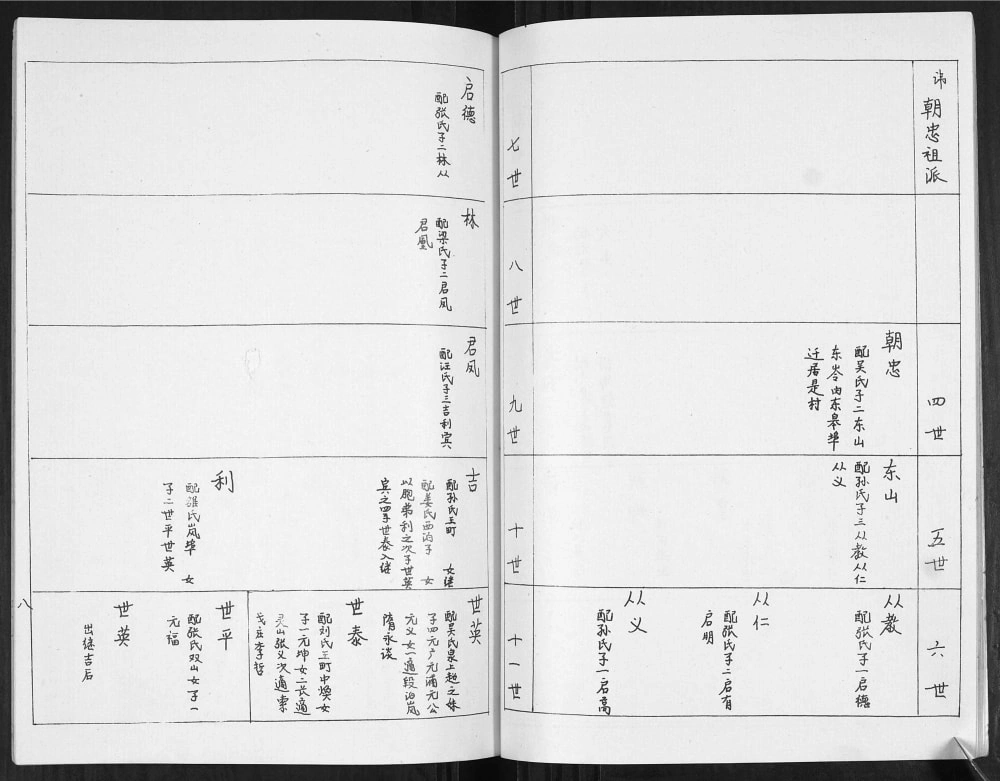 讳朝忠祖派
四世
朝忠
配吴氏子二东山
东岺由东皋埠
迁居是村
五世
东山
配孙氏子三从教从仁
从义
六世
从教
配张氏子一启德
从仁
配张氏子一启有
启明
从义
配孙氏子一启高
七世
启德
配张氏子二林从
八世
林
配梁氏子二君凤
君凰
九世
君凤
配汪氏子三吉利宾
十世
吉
配孙氏三町 女继
配姜氏西泊子 女
以胞弟利之次子世英
宾之四子世泰入继
利
配梁氏岚埠 女
子二世平世英
十一世
世英
配吴氏泉上超之妹
子四元广元浦元公
元义女一适段泊岚
隋永谈
世泰
配刘氏三町中焕女
子一元坤女二长适
灵山张义次适索
戈庄李哲
世平
配张氏双山女子一
元福
世英
出继吉后
八